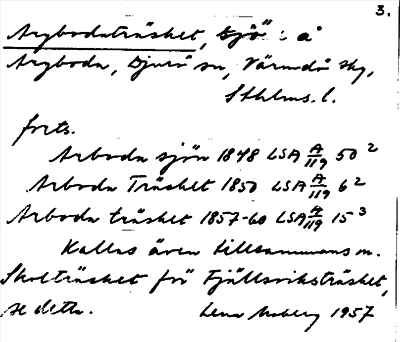 3.
Arybodaträsket, sjö å
Aryboda, Djurö sn, Värmdö skg,
Sthlms. l.
forts.
Arboda sjön 1848 LSA A/119 50²
Arboda Träsket 1850 LSA A/119 6²
Arboda träsket 1857-60 LSA A/119 15³
Kallas även tillsammans m.
Skolträsket för Fjällsviksträsket,
se detta. Lena Moberg 1957